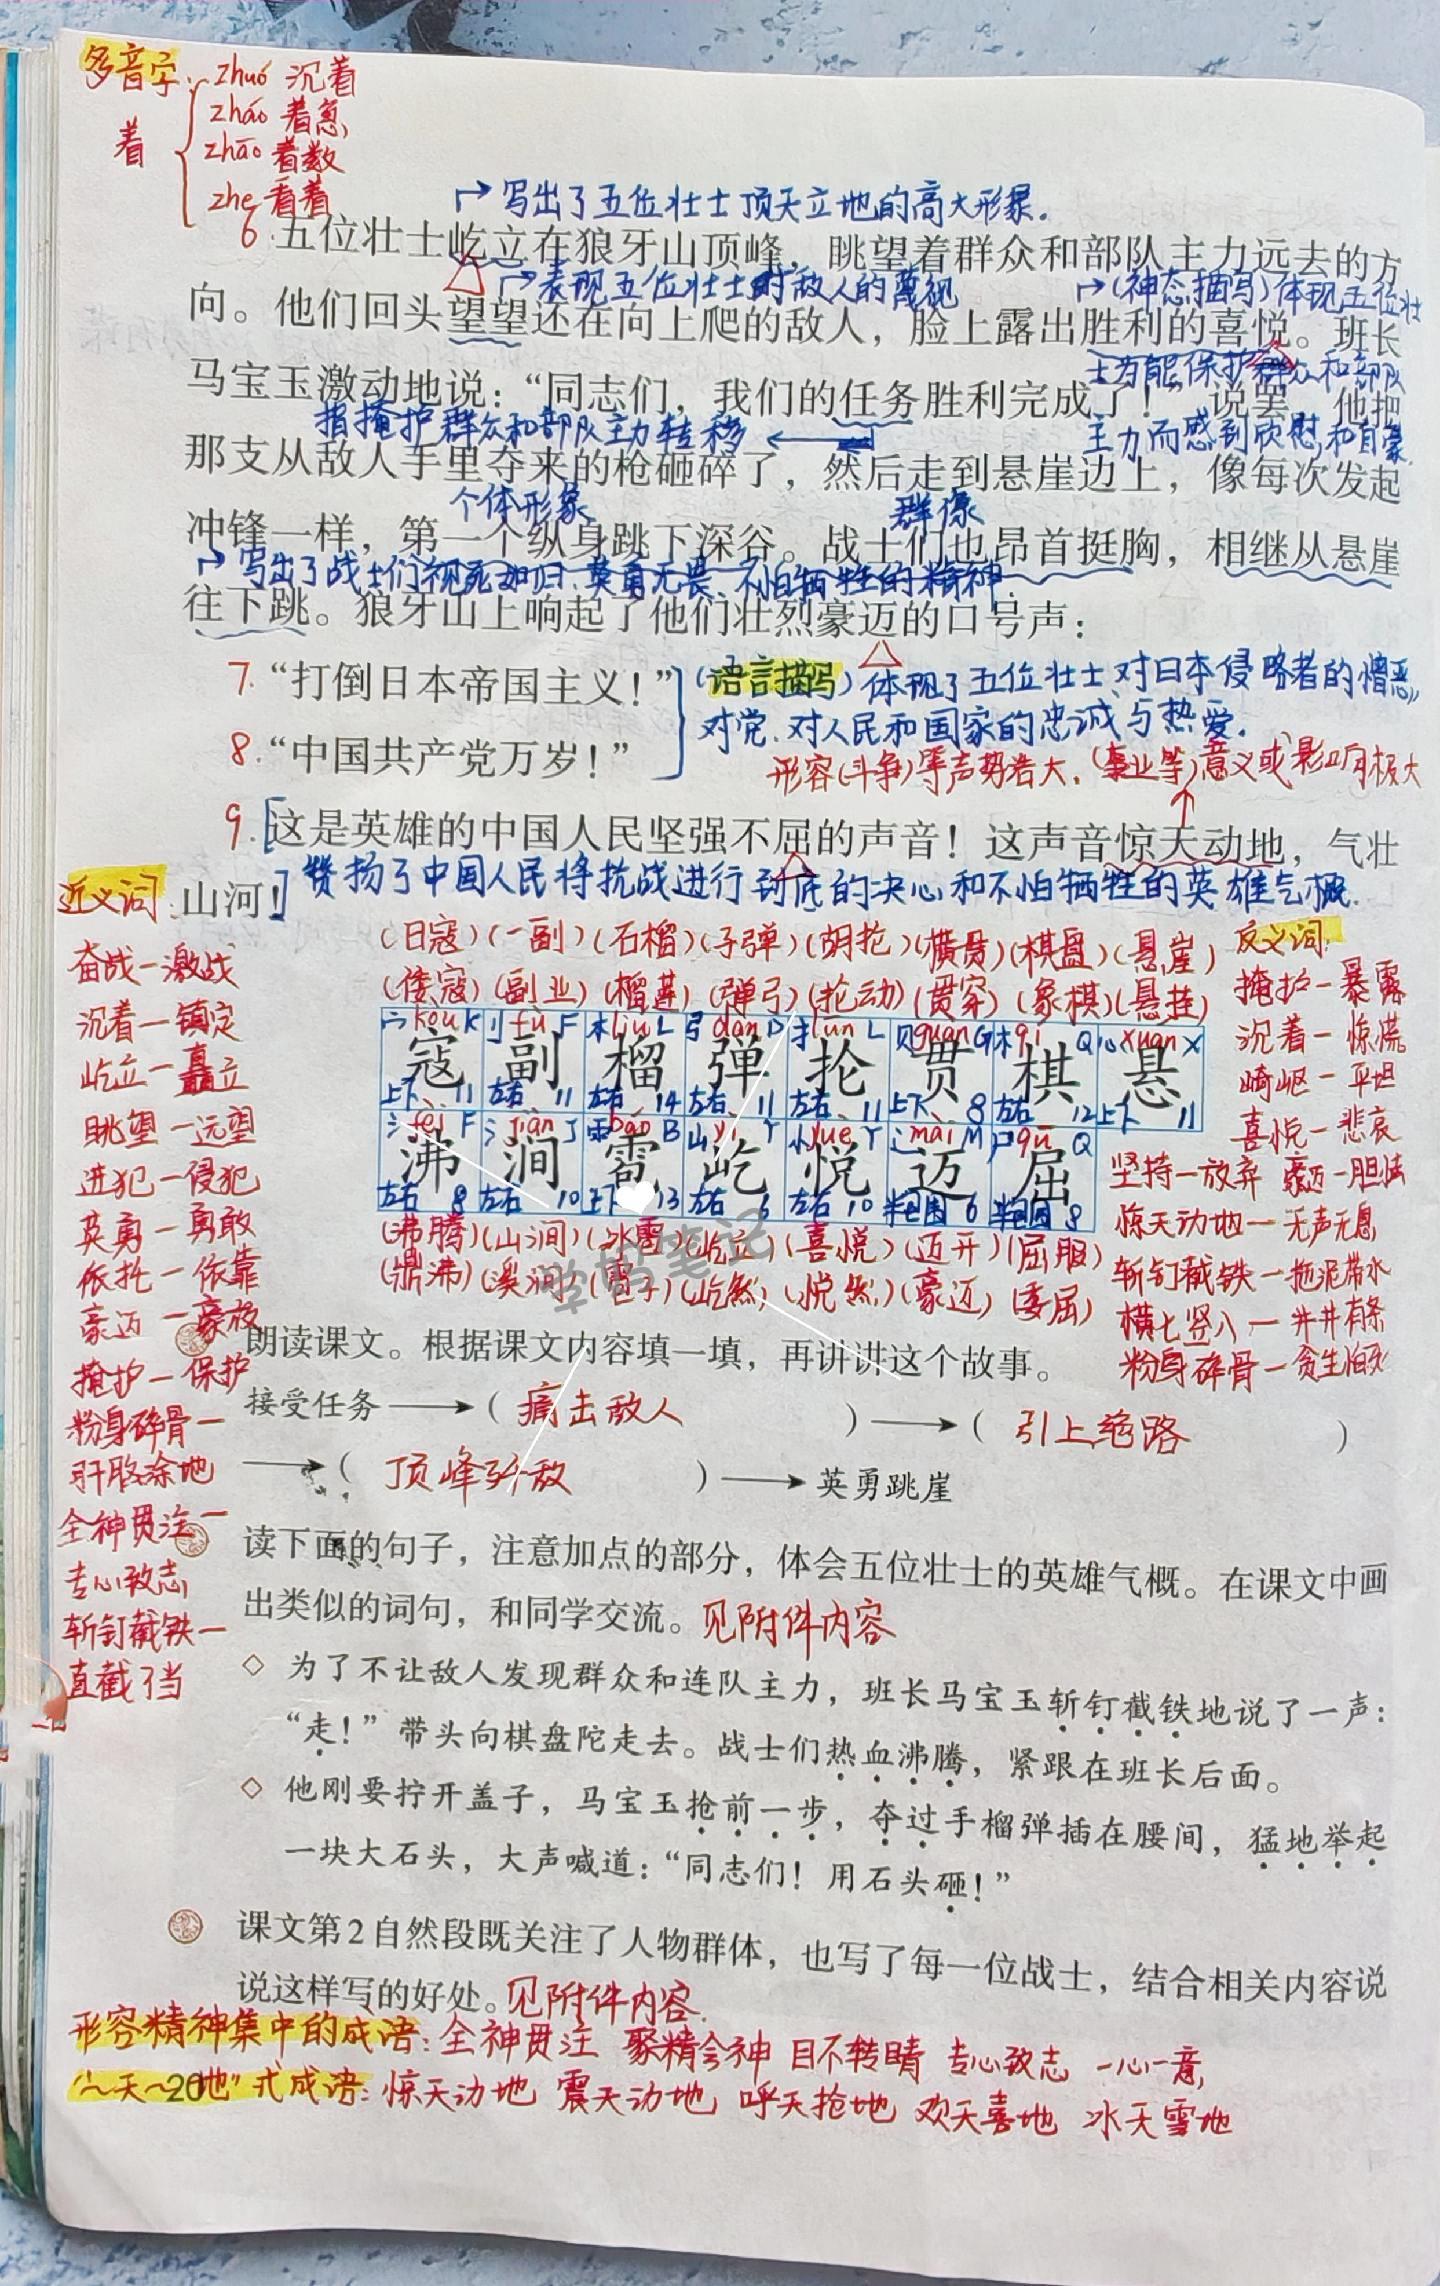 多音字:
着
zhuó 沉着
zháo 着急
zhāo 着数
zhe 看着
写出了五位壮士顶天立地的高大形象.
6.五位壮士屹立在狼牙山顶峰，眺望着群众和部队主力远去的方
表现五位壮士对敌人的蔑视
(神态描写)体现五位壮
向。他们回头望望还在向上爬的敌人，脸上露出胜利的喜悦。班长
士为能保护群众和部队
马宝玉激动地说：“同志们，我们的任务胜利完成了！”说罢，他把
指掩护群众和部队主力转移
主力而感到欣慰和自豪.
那支从敌人手里夺来的枪砸碎了，然后走到悬崖边上，像每次发起
个体形象
群像
冲锋一样，第一个纵身跳下深谷。战士们也昂首挺胸，相继从悬崖
写出了战士们视死如归、英勇无畏、不怕牺牲的精神.
往下跳。狼牙山上响起了他们壮烈豪迈的口号声：
7.“打倒日本帝国主义！”
(语言描写)体现了五位壮士对日本侵略者的憎恶,
对党、对人民和国家的忠诚与热爱.
8.“中国共产党万岁！”
形容(斗争)等声势浩大，(事业等)意义或影响极大
9.[这是英雄的中国人民坚强不屈的声音！这声音惊天动地，气壮
山河！]
赞扬了中国人民将抗战进行到底的决心和不怕牺牲的英雄气概.
近义词:
奋战—激战
沉着—镇定
屹立—矗立
眺望—远望
进犯—侵犯
英勇—勇敢
依托—依靠
豪迈—豪放
掩护—保护
粉身碎骨—
肝脑涂地
全神贯注—
专心致志
斩钉截铁—
直截了当
反义词:
掩护—暴露
沉着—惊慌
崎岖—平坦
喜悦—悲哀
坚持—放弃 豪迈—胆怯
惊天动地—无声无息
斩钉截铁—拖泥带水
横七竖八—井井有条
粉身碎骨—贪生怕死
(日寇)(一副)(石榴)(子弹)(胡抡)(横贯)(棋盘)(悬崖)
(倭寇)(副业)(榴莲)(弹弓)(抡动)(贯穿)(象棋)(悬挂)
宀 kòu K 刂 fù F 木 liú L 弓 dàn D 扌 lūn L 贝 guàn G 木 qí Q 心 xuán X
寇 副 榴 弹 抡 贯 棋 悬
上下 11 左右 11 左右 14 左右 11 左右 11 上下 8 左右 12 上下 11
氵 fèi F 氵 jiàn J 雨 báo B 山 yì Y 忄 yuè Y 辶 mài M 尸 qū Q
沸 涧 雹 屹 悦 迈 屈
左右 8 左右 10 上下 13 左右 6 左右 10 半包围 6 半包围 8
(沸腾)(山涧)(冰雹)(屹立)(喜悦)(迈开)(屈服)
(鼎沸)(溪涧)(雹子)(屹然)(悦然)(豪迈)(委屈)
学妈笔记
朗读课文。根据课文内容填一填，再讲讲这个故事。
接受任务→( 痛击敌人 )→( 引上绝路 )
→( 顶峰歼敌 )→英勇跳崖
读下面的句子，注意加点的部分，体会五位壮士的英雄气概。在课文中画
出类似的词句，和同学交流。见附件内容
◇ 为了不让敌人发现群众和连队主力，班长马宝玉斩钉截铁地说了一声：
“走！”带头向棋盘陀走去。战士们热血沸腾，紧跟在班长后面。
◇ 他刚要拧开盖子，马宝玉抢前一步，夺过手榴弹插在腰间，猛地举起
一块大石头，大声喊道：“同志们！用石头砸！”
课文第2自然段既关注了人物群体，也写了每一位战士，结合相关内容说
说这样写的好处。见附件内容.
形容精神集中的成语:全神贯注 聚精会神 目不转睛 专心致志 一心一意
“～天～地”式成语:惊天动地 震天动地 呼天抢地 欢天喜地 冰天雪地
20